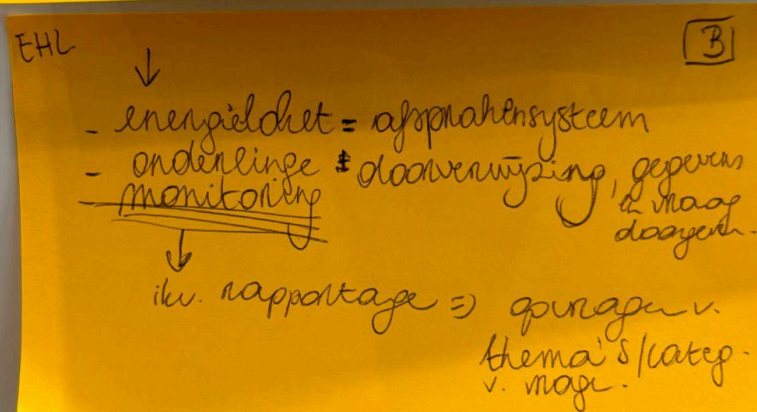 EHL
B
- energieloket = afsprakensysteem
- onderlinge doorverwijzing, gegevens
en vraag
doorgeven.
- monitoring
ikv. rapportage => opvragen v.
thema's/categ.
v. vrage.